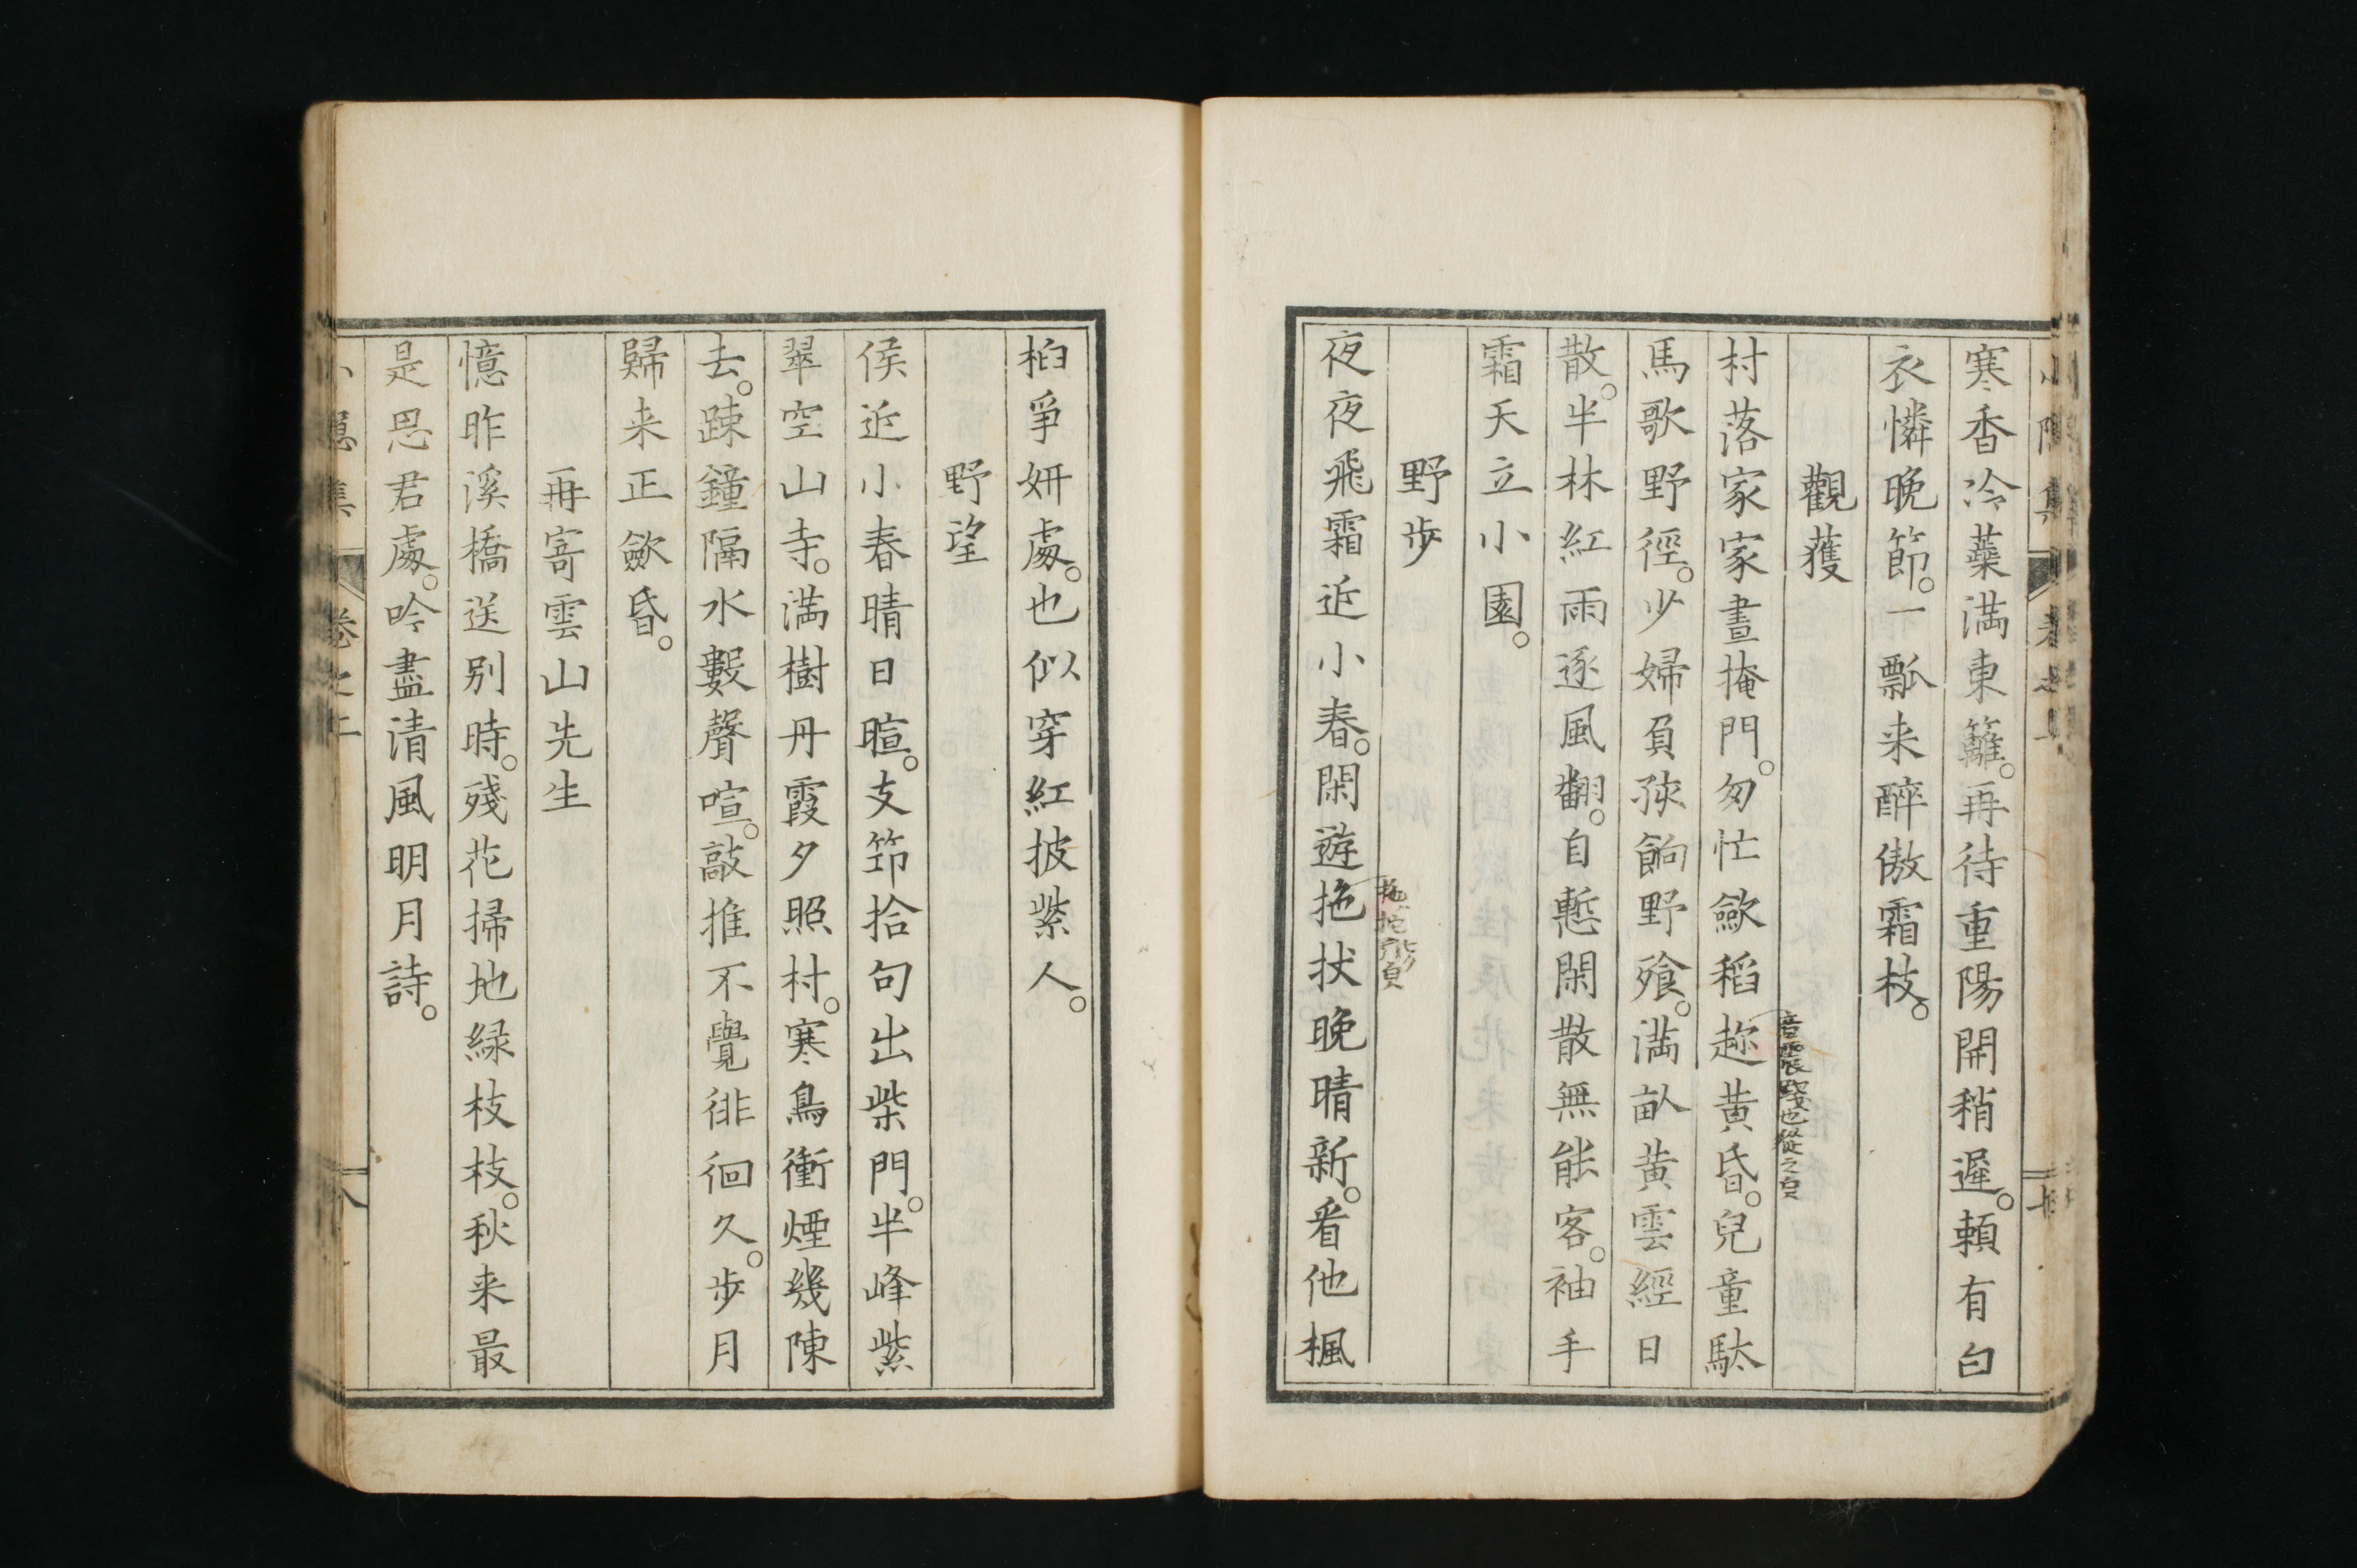 寒香冷蘂満東籬。再待重陽開稍遲。頼有白
衣憐晩節。一瓢来醉傲霜枝。
觀穫
村落家家晝掩門。匆忙歛稻趂黄昏。兒童馱
馬歌野徑。少婦負孩餉野飱。満畝黄雲經日
散。半林紅雨逐風翻。自慙閑散無能客。袖手
霜天立小園。
野步
夜夜飛霜近小春。閑遊拖杖晩晴新。看他楓
桕爭妍處。也似穿紅披紫人。
野望
候近小春晴日暄。支笻拾句出柴門。半峰紫
翠空山寺。満樹丹霞夕照村。寒鳥衝煙幾陳
去。踈鐘隔水數聲喧。敲推不覺徘徊久。步月
歸来正歛昏。
再寄雲山先生
憶昨溪橋送別時。殘花掃地緑枝枝。秋来最
是思君處。吟盡清風明月詩。
小隱集 卷之上 八